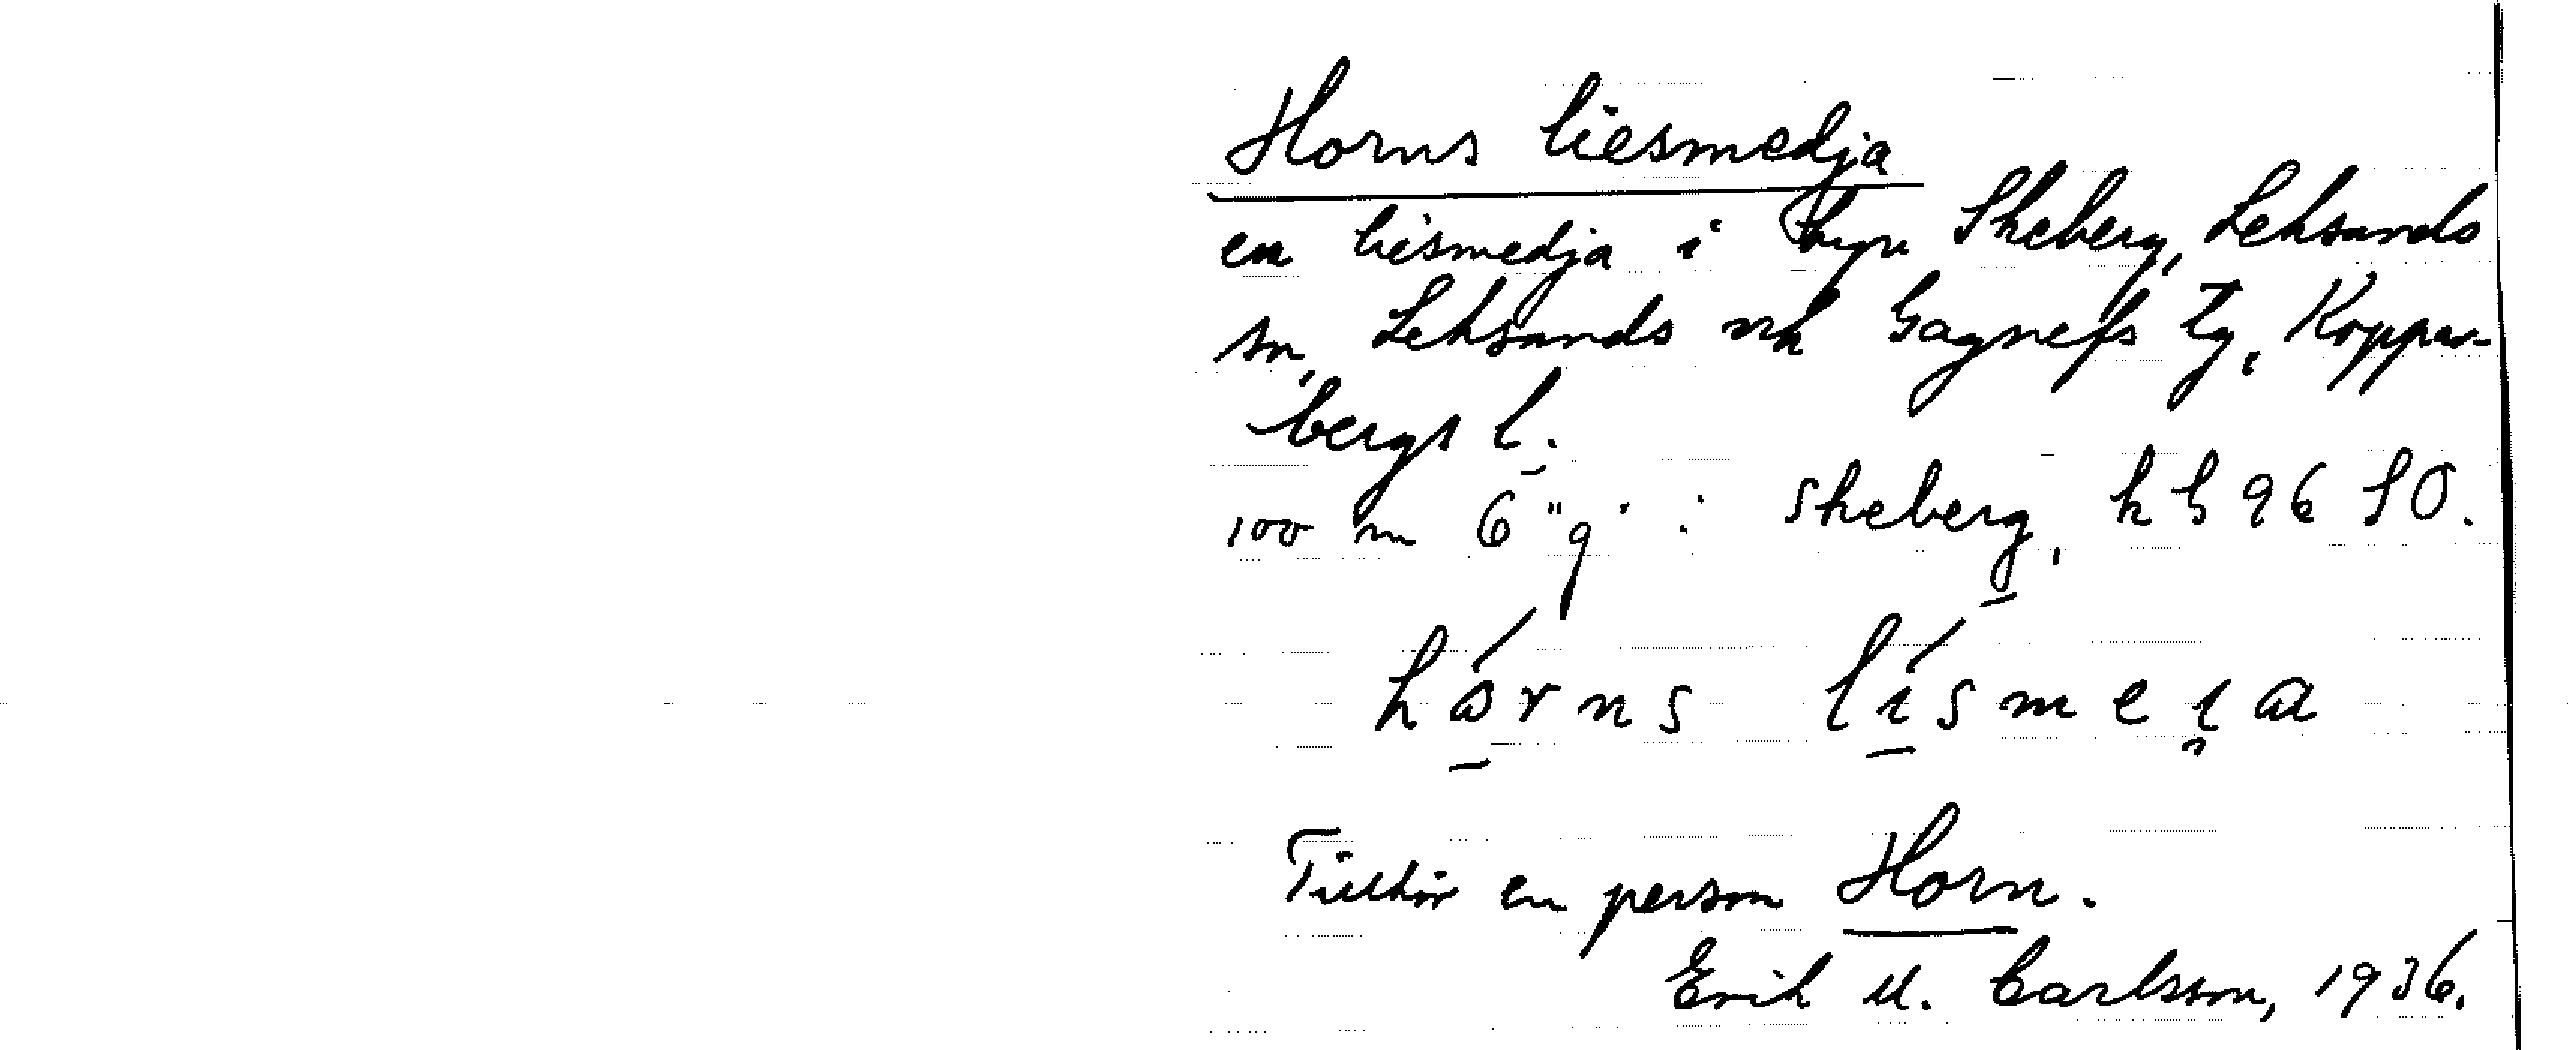 Horns liesmedja
en liesmedja i byn Skeberg, Leksands
sn, Leksands och Gagnefs tg, Koppar-
bergs l.
100 m G "g" i Skeberg, kb 96 SO.
hårns lismeia
Tillhör en person Horn.
Erik U. Carlsson, 1936.